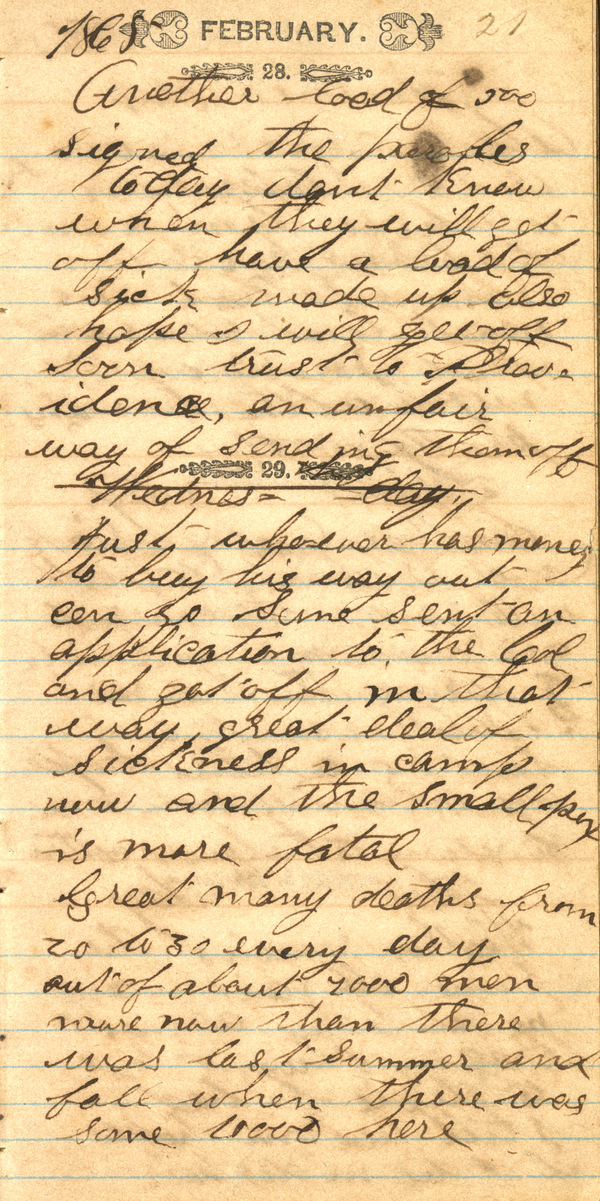 1865 FEBRUARY. 21
28.
Another load of 500
signed the paroles
to day dont know
when they will get
off have a load of
sick made up also
hope I will get off
soon trust to Prov=
idence, an unfair
way of sending them off
29.
Wednes= day.
Just whoever has money
to buy his way out
can go Some sent an
application to the Col
and got off in that
way, great deal of
sickness in camp
now and the small pox
is more fatal
Great many deaths from
20 to 30 every day
out of about 7000 men
more now than there
was last Summer and
fall when there was
some 10000 here